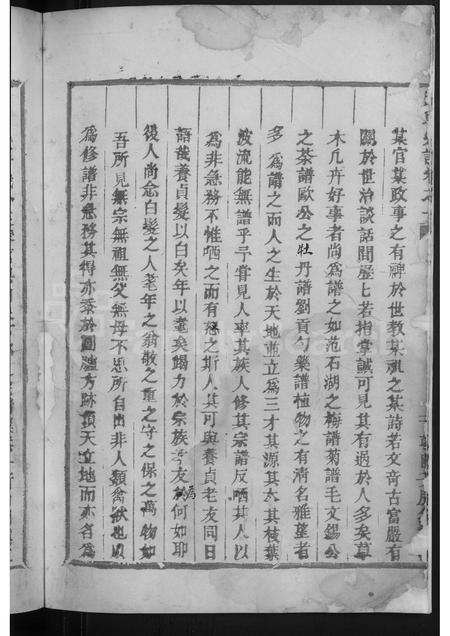 某官某政事之有裨於世教某祖之某詩若文奇古富嚴有
關於世治談話間歷七若指掌誠可見其有過於人多矣草
木凡卉好事者尚為譜之如范石湖之梅譜菊譜毛文錫公
之茶譜歐公之牡丹譜劉貢勺藥譜植物之有清名雅望者
多為譜之而人之生於天地並立為三才其源其本其枝葉
波流能無譜乎予嘗見人率其族人修其宗譜反哂其人以
為非急務不惟哂之而有怒之斯人其可與養貞老友同日
語哉養貞髮以白矣年以耄矣竭力於宗族予友為何如耶
後人尚念白髮之人耄年之翁敬之重之守之保之萬物如
吾所見無宗無祖無父無母不思所自出非人類禽獸也以
為修譜非急務其得亦忝於圓顱方跡頂天立地而亦名為